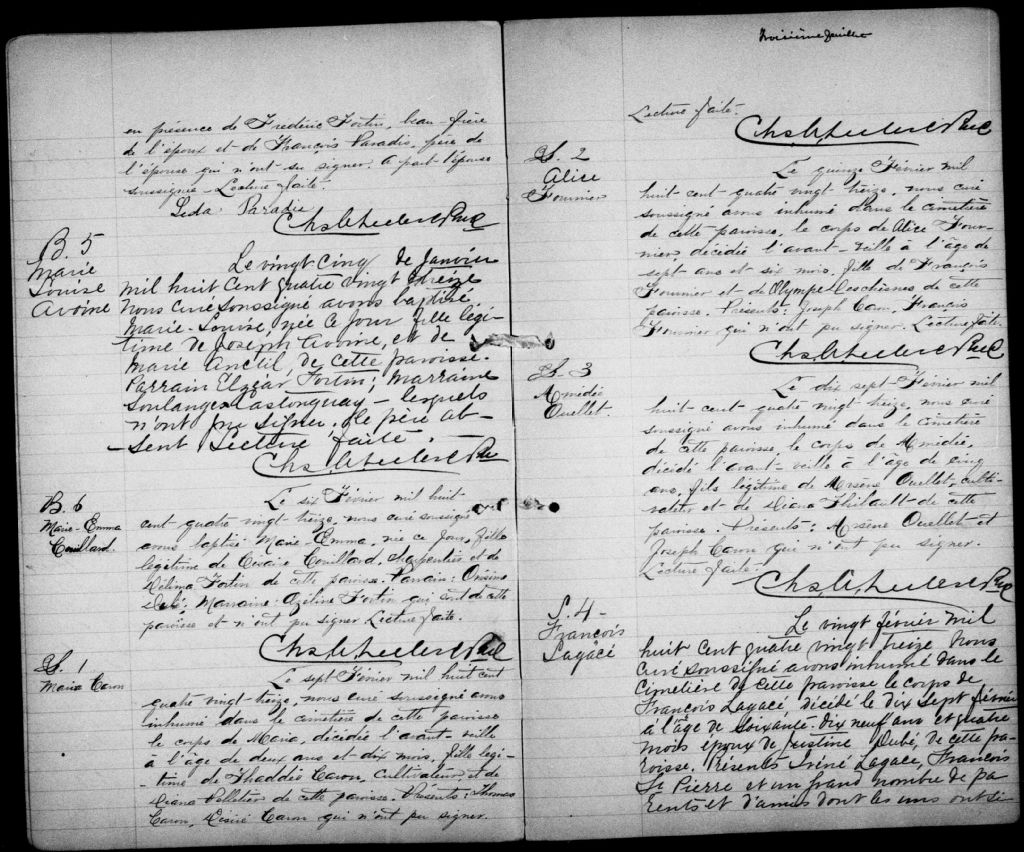 en présence de Frédéric Fortin, beau-frère
de l'époux et de François Paradis, père de
l'épouse qui n'ont su signer. à part l'épouse
soussignée - Lecture faite.
Léda Paradis
Chs. Leclerc Ptre
B. 5
Marie
Louise
Avoine
Le vingt cinq de Janvier
mil huit Cent quatre vingt treize
Nous curé soussigné avons baptisé,
Marie-Louise, née ce jour fille légi-
time de Joseph Avoine, et de
Marie Anctil, de cette paroisse.
Parrain Elzéar Fortin; Marraine
Soulanges Castonguay - lesquels
n'ont pu signer. Le père ab-
sent Lecture faite.
Chs. Leclerc Ptre
B. 6
Marie-Emma
Couillard.
Le six Février mil huit
cent quatre vingt treize, nous curé soussigné
avons baptisé Marie Emma, née ce jour, fille
légitime de Césaire Couillard, charpentier et de
Délima Fortin de cette paroisse. Parrain: Onésime
Dubé; Marraine: Azéline Fortin qui sont de cette
paroisse et n'ont pu signer Lecture faite.
Chs. Leclerc Ptre
S. 1
Maria Caron
Le sept Février mil huit cent
quatre vingt treize, nous curé soussigné avons
inhumé dans le cimetière de cette paroisse
le corps de Maria, décédée l'avant-veille
à l'âge de deux ans et dix mois, fille legi-
time de Thaddée Caron, Cultivateur et de
Diana Pelletier de cette paroisse. Présents: Thomas
Caron, Désiré Caron qui n'ont pu signer.
troisième feuillet
Lecture faite.
Chs. Leclerc Ptre
S. 2
Alice
Fournier
Le quinze Février mil
huit cent quatre vingt treize, nous curé
soussigné avons inhumé dans le cimetière
de cette paroisse, le corps de Alice Four-
nier, décédée l'avant-veille à l'âge de
sept ans et six mois, fille de François
Fournier et de Olympe Deschênes de cette
paroisse. Présents: Joseph Caron, François
Fournier qui n'ont pu signer. Lecture faite.
Chs. Leclerc Ptre
S. 3
Amédée
Ouellet.
Le dix sept Février mil
huit cent quatre vingt treize, nous curé
soussigné avons inhumé dans le cimetière
de cette paroisse, le corps de Amédée,
décédé l'avant-veille à l'âge de cinq
ans, fils légitime de Arsène Ouellet, culti-
vateur et de Diana Thibault de cette
paroisse. Présents: Arsène Ouellet et
Joseph Caron qui n'ont pu signer.
Lecture faite.
Chs. Leclerc Ptre
S. 4
François
Lagacé
Le vingt février mil
huit Cent quatre vingt treize Nous
curé soussigné avons inhumé dans le
Cimetière de Cette paroisse le corps de
François Lagacé, décédé le dix sept février
à l'âge de soixante-dix neuf ans et quatre
mois époux de Justine Dubé, de cette pa-
roisse. Présents Iréné Lagacé, François
St Pierre et un grand nombre de pa
rents et d'amis dont les uns ont si